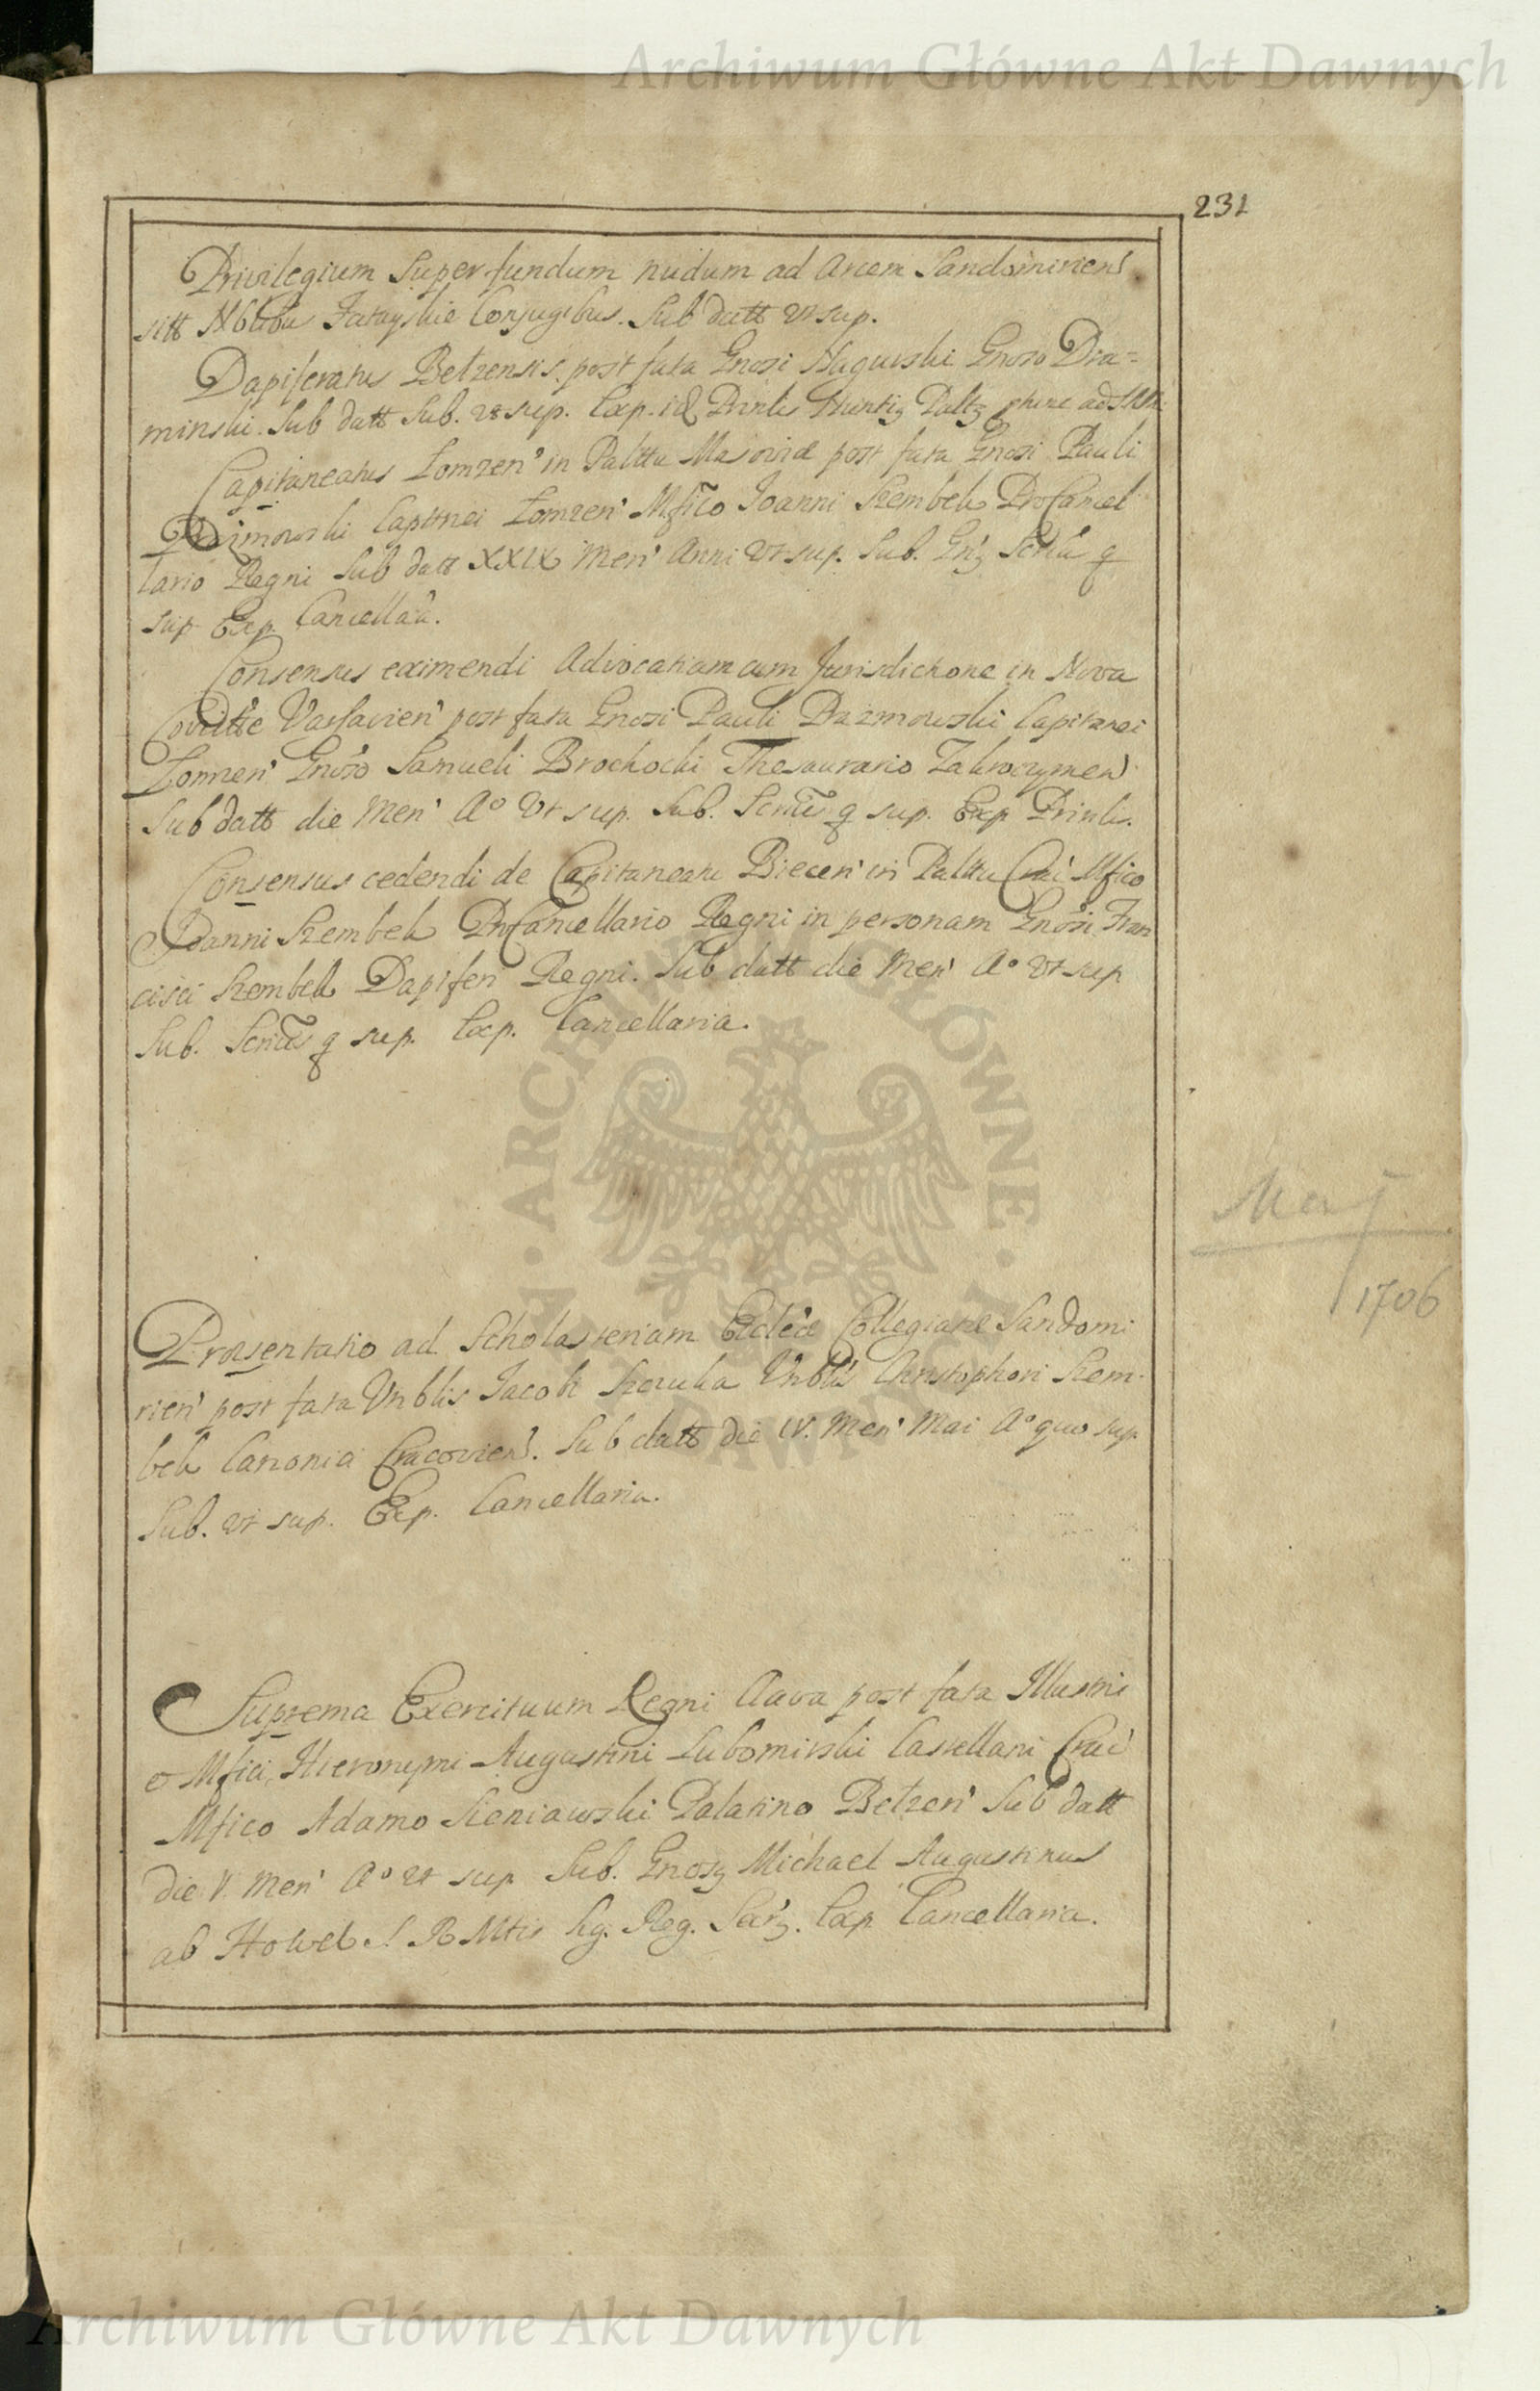 Archiwum Główne Akt Dawnych
231
Privilegium Super fundum nudum ad Arcem Sandomirien̄
sitt Nblibus Conjugibus. Sub datt ut sup.
Dapiferatus Belzensis post fata Gnosi Gnoso Dra=
minski. Sub datt Sub. ut sup. Exp. id Prinlis
Capitaneatus Łomzen' in Palttu Masoviæ post fata Gnosi Pauli
Prazmowski Capitnei Łomzen' Mfico Joanni Szembek ProCancel
lario Regni Sub datt XXIX Men' Anni Ut sup. Sub. q
sup Exp. Cancellaã.
Consensus eximendi Advocatiam cum Jurisdictione in Nova
Civitte Varsavien' post fata Gnosi Pauli Prazmowski Capitanei
Łomzen' Gnoso Samueli Brochocki Thesaurario Zakroczymen̄
Sub datt die Men' Aº Ut sup. Sub. q sup. Exp Prinlis.
Consensus cedendi de Capitaneatu Biecen' in Palttu Crac' Mfico
Joanni Szembek ProCancellario Regni in personam Gnosi Fran
cisci Szembek Dapiferi Regni. Sub datt die Men' Aº Ut sup
Sub. q sup. Exp. Cancellaria.
Maj
1706
Præsentatio ad Scholasteriam Eccleæ Collegiatæ Sandomi
rien' post fata Vnblis Jacobi Vnblis Christophori Szem-
bek Canonici Cracovien̄. Sub datt die IV. Men' Mai Aº quo sup
Sub. ut sup. Exp. Cancellaria.
Suprema Exercituum Regni Clava post fata Illusmi
et Mfici Hieronymi Augustini Lubomirski Castellani Crac'
Mfico Adamo Sieniawski Palatino Belzen' Sub datt
die V. Men' Aº ut sup Sub. Gnos3 Michael Augustinus
ab Howel S R Mtis Sig. Reg. Exp Cancellaria.
ARCHIWUM GŁÓWNE AKT DAWNYCH
Archiwum Główne Akt Dawnych